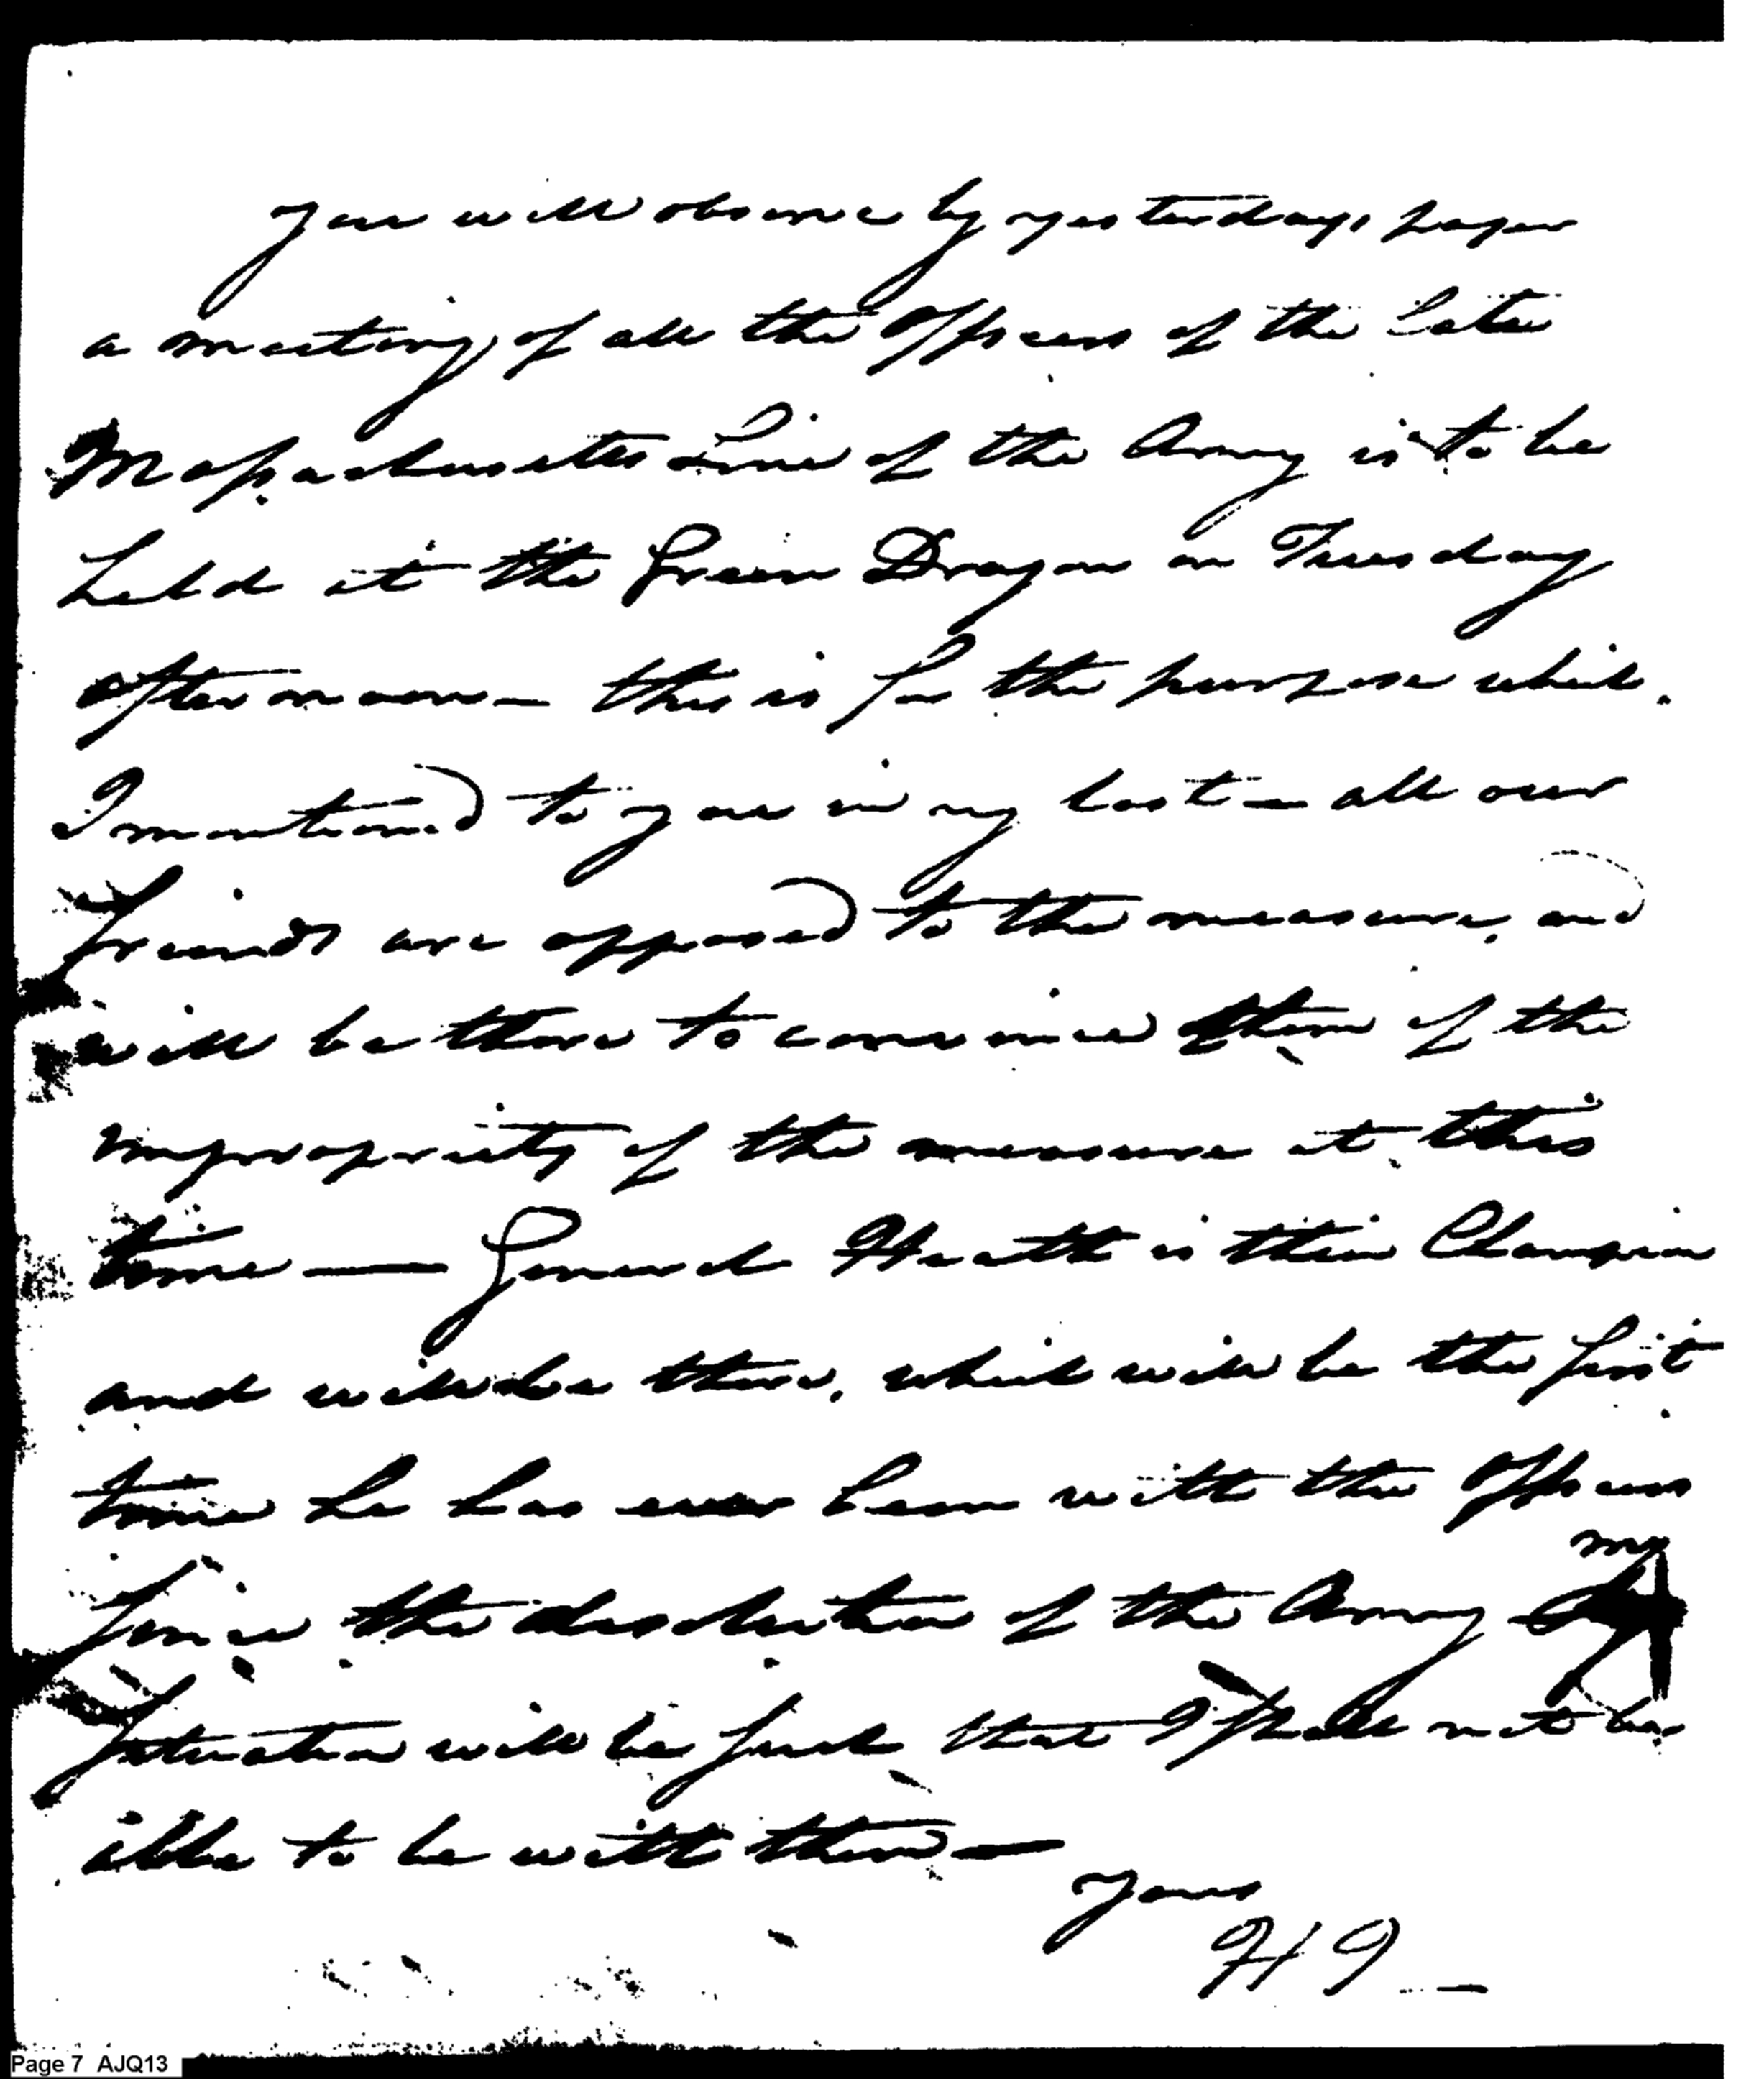 You will observe by yesterdays paper
a meeting of all the Officers of the late
Massachusetts Line of the Army is to be
held at the Green Dragon on Tuesday
afternoon — this is for the purpose which
I mentioned to you in my last — all our
Friends are opposed to the measure, and
will be there to convince them of the
impropriety of the measure at this
time — General Heath is their Champion
and will be there, which will be the first
time he has ever been with the Officers
since the desolution of the Army my
situation will be such that I shall not be
able to be with them —
Yours
HJ —
Page 7 AJQ13